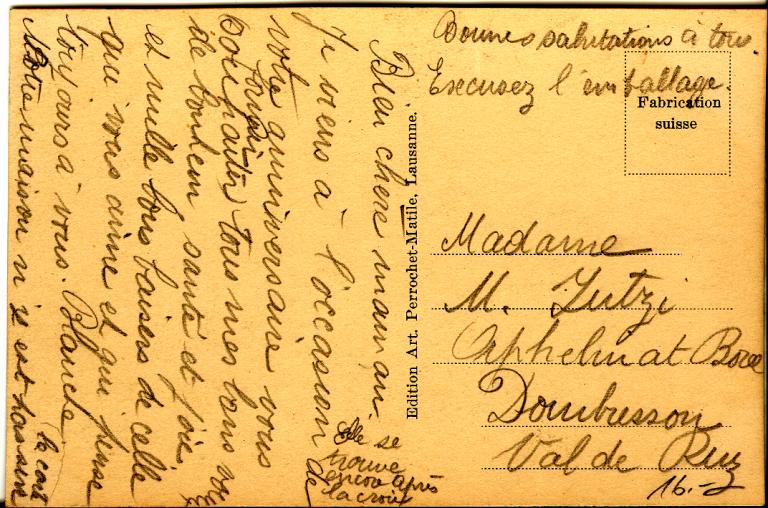 Bien chère maman.
Je viens à l'occasion de
votre anniversaire vous
souhaiter tous mes bons vœux
de bonheur santé et joie
et mille bons baisers de celle
qui vous aime et qui pense
toujours à vous. Blanche
Notre maison n'y est pas sur
la carte
Elle se
trouve
encore après
la croix
Edition Art. Perrochet-Matile, Lausanne.
Bonnes salutations à tous.
Excusez l'emballage.
Fabrication
suisse
Madame
M. Jutzi
Orphelinat Borel
Dombresson
Val de Ruz
16.-2